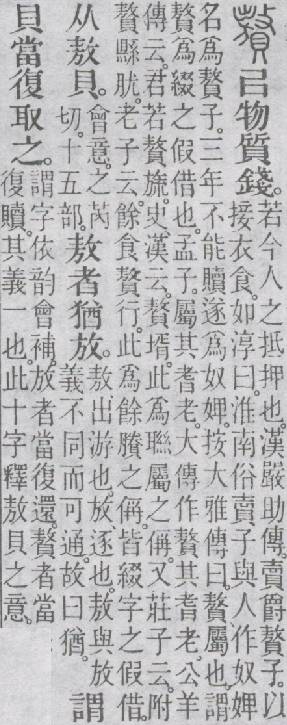 贅㠯物質錢。若今人之抵押也。漢嚴助傳。賣爵贅子。以
接衣食。如淳曰。淮南俗賣子與人作奴婢
名爲贅子。三年不能贖。遂爲奴婢。按大雅傳曰。贅屬也。謂
贅爲綴之假借也。孟子。屬其耆老。大傳作贅其耆老。公羊
傳云。君若贅旒。史漢云。贅壻。此爲聯屬之偁。又莊子云。附
贅縣肬。老子云。餘食贅行。此爲餘賸之偁。皆綴字之假借。
从敖貝。會意。之芮
切。十五部。敖者猶放。敖出游也。放逐也。敖與放
義不同而可通。故曰猶。謂
貝當復取之。謂字依韵會補。放者當復還。贅者當
復贖。其義一也。此十字釋敖貝之意。